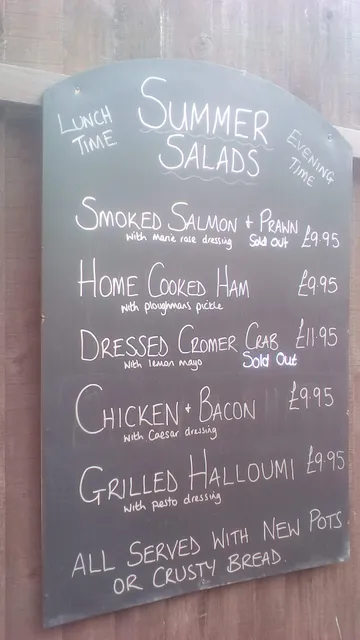 SUMMER
SALADS
LUNCH
TIME
EVENING
TIME
SMOKED SALMON + PRAWN
with marie rose dressing Sold Out £9.95
HOME COOKED HAM £9.95
with ploughmans pickle
DRESSED CROMER CRAB £11.95
with lemon mayo Sold Out
CHICKEN + BACON £9.95
with Caesar dressing
GRILLED HALLOUMI £9.95
with pesto dressing
ALL SERVED WITH NEW POTS
OR CRUSTY BREAD.